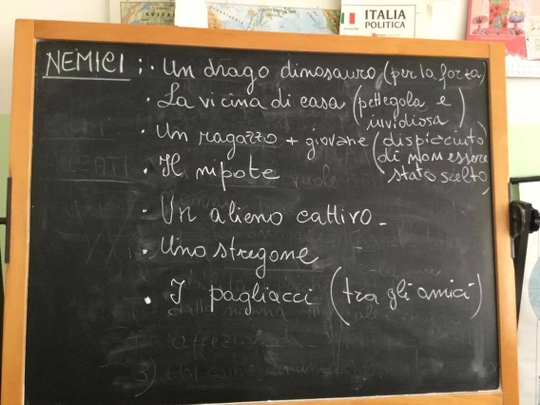 ITALIA
POLITICA
NEMICI : • Un drago dinosauro (per la forza)
• La vicina di casa (pettegola e
invidiosa)
• Un ragazzo + giovane (dispiaciuto
di non essere
stato scelto)
• Il nipote
• Un alieno cattivo -
• Uno stregone
• I pagliacci (tra gli amici)